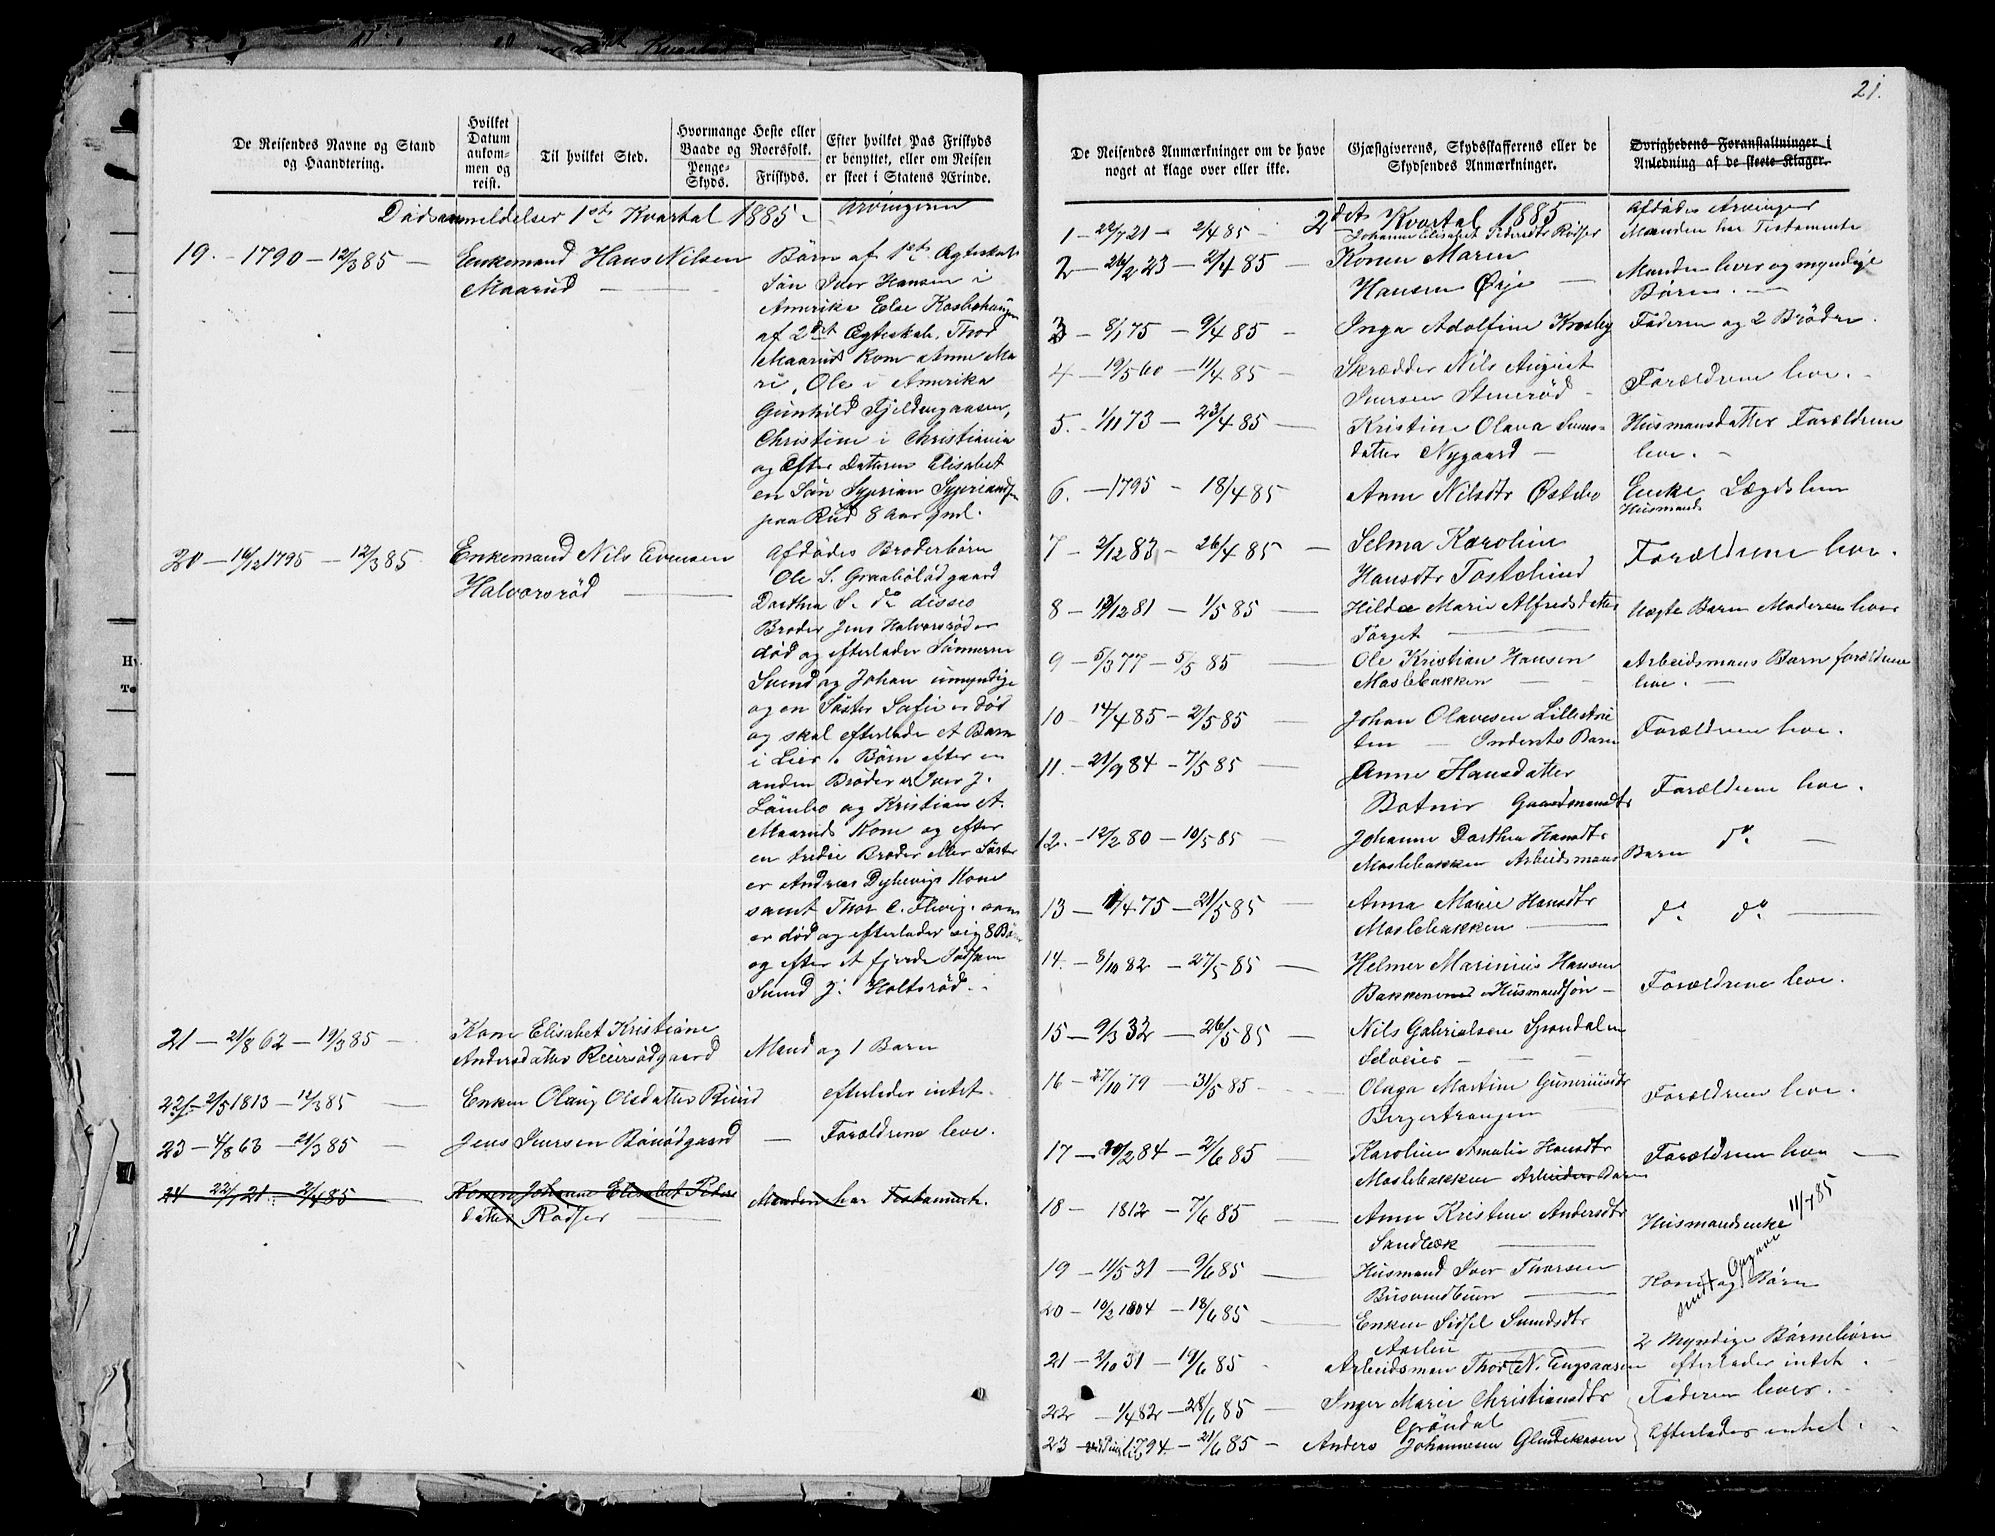 De Reisendes Navne og Stand
og Haandtering.
Hvilket
Datum
ankom-
men og
reist.
Til hvilket Sted.
Hvormange Heste eller
Baade og Roersfolk.
Penge-
Skyds.
Friskyds.
Efter hvilket Pas Friskyds
er benyttet, eller om Reisen
er skeet i Statens Ærinde.
Dødsanmeldelser 1ste Kvartal 1885 -
Arvingerne
19. - 1790 - 12/3 85 - Enkemand Hans Nilsen
Maarud
Børn af 1ste Ægteskab
Søn Iver Hansen i
Amerika Else Kaslehaugen
af 2det Ægteskab. Thor
Maaruds Kone Anne Ma-
ri, Ole i Amerika
Gunhild Fjeldengaasen,
Christine i Christiania
og Efter Dateren Elisabet
en Søn Syprian Sypriansen
paa Rud 8 Aar gml.
20 - 14/12 1795 - 12/3 85 Enkemand Nils Evensen
Halvorsrød
Afdødes Broderbørn
Ole S. Graabølødgaard
Dorthea S. do disses
Broder Jens Halvorsrød er
død og efterlader Sønnerne
Svend og Johan umyndige
og en Søster Sofie er død
og skal efterlade et Barn
i Lier. Børn efter en
anden Broder er Iver J.
Lømbo og Kristian A.
Maaruds Kone og efter
en tredie Broder eller Søster
er Andreas Dyhevigs Kone
samt Thor C. Flevig. som
er død og efterlader sig 8 Børn
og efter et fjerde Sødsken
Svend J. Holtsrød. -
21 - 21/8 62 - 19/3 85 - Kone Elisabet Kristiane
Andersdatter Reiersødgaard
Mand og 1 Barn
22 - 2/5 1813 - 17/3 85 - Enken Olaug Olsdatter Buud
efterlader intet.
23 - 4/8 63 - 21/3 85 - Jens Iversen Bønødgaard - Forældrene leve.
24 22/7 21 - 2/4 85 Konen Johanne Elisabet Peders
datter Rødser
Manden har Testamente.
21.
De Reisendes Anmærkninger om de have
noget at klage over eller ikke.
Gjæstgiverens, Skydsskafferens eller de
Skydsendes Anmærkninger.
Øvrighedens Foranstaltninger i
Anledning af de skeete Klager.
2det Kvartal 1885
1 - 22/7 21 - 2/4 85 - Johanne Elisabet Pedersdtr Rødser
Afdødes Arvinger
Manden har Testamente
2 - 26/2 23 - 2/4 85 - Konen Maren
Hansen Ørje
Manden lever og myndige
Børn. -
3 - 8/1 75 - 9/4 85 - Inga Adolfine Krosby
Faderen og 2 Brødre.
4 - 19/5 60 - 11/4 85 - Skrædder Nils August
Iversen Stenerød -
Forældrene leve. -
5. - 1/11 73 - 23/4 85 - Kristine Olava Svens-
datter Nygaard -
Husmansdatter Forældrene
leve. -
6. - 1795 - 18/4 85 Anne Nilsdtr Østebo
Enke Lægdslem
Husmands
7 - 2/12 83 - 26/4 85 - Selma Karoline
Hansdtr Tostelund
Forældrene leve.
8 - 13/12 81 - 1/5 85 - Hilda Marie Alfredsdatter
Torget
Uægte Barn Moderen lever
9 - 5/3 77 - 5/5 85 - Ole Kristian Hansen
Moslebakken - -
Arbeidsmans Barn forældrene
leve. -
10 - 14/4 85 - 2/5 85 - Johan Olavesen Lillestrø
ten - Inderste Barn
Forældrene leve.
11. - 21/9 84 - 7/5 85 - Anne Hansdatter
Botner Gaardmandtr
Forældrene leve.
12. - 12/2 80 - 10/5 85 - Johanne Dorthea Hansdtr
Moslebakken Arbeidsmans Barn do -
13 - 11/4 75 - 21/5 85 - Anna Marie Hansdtr
Moslebakken -
do do -
14. - 8/10 82 - 27/5 85 - Helmer Marinius Hansen
Bakkenenes Husmandsøn -
Forældrene leve.
15 - 9/3 32 - 26/5 85 - Nils Gabrielsen Grøndalen
Selveier - -
16 - 27/10 79 - 31/5 85 - Olaga Martine Guneriusdtr
Bergertrangen -
Forældrene leve.
17 - 20/2 84 - 2/6 85 - Karoline Amalie Hansdtr
Moslebakken Arbeiders Barn
Forældrene leve -
18 - 1812 - 7/6 85 - Anne Kristine Andersdtr
Sandbæk
Husmandsenke
11/7 85
19 - 11/5 31 - 9/6 85 - Husmand Iver Thorsen
Busvendbeen -
Kone og Børn
sendt Opgave
20 - 10/2 1804 - 18/6 85 - Enken Sidsel Svendsdtr
Aaslie
2 Myndige Børnebørn
21 - 2/10 31 - 19/6 85 - Arbeidsman Thor N. Engsaasen
efterlader intet. -
22 - 1/4 82 - 28/6 85 - Inger Marie Christiansdtr
Grøndal
Faderen lever. -
23 - 1794. - 21/6 85 - Anders Johannesen Glendekasen
Efterlader intet. -